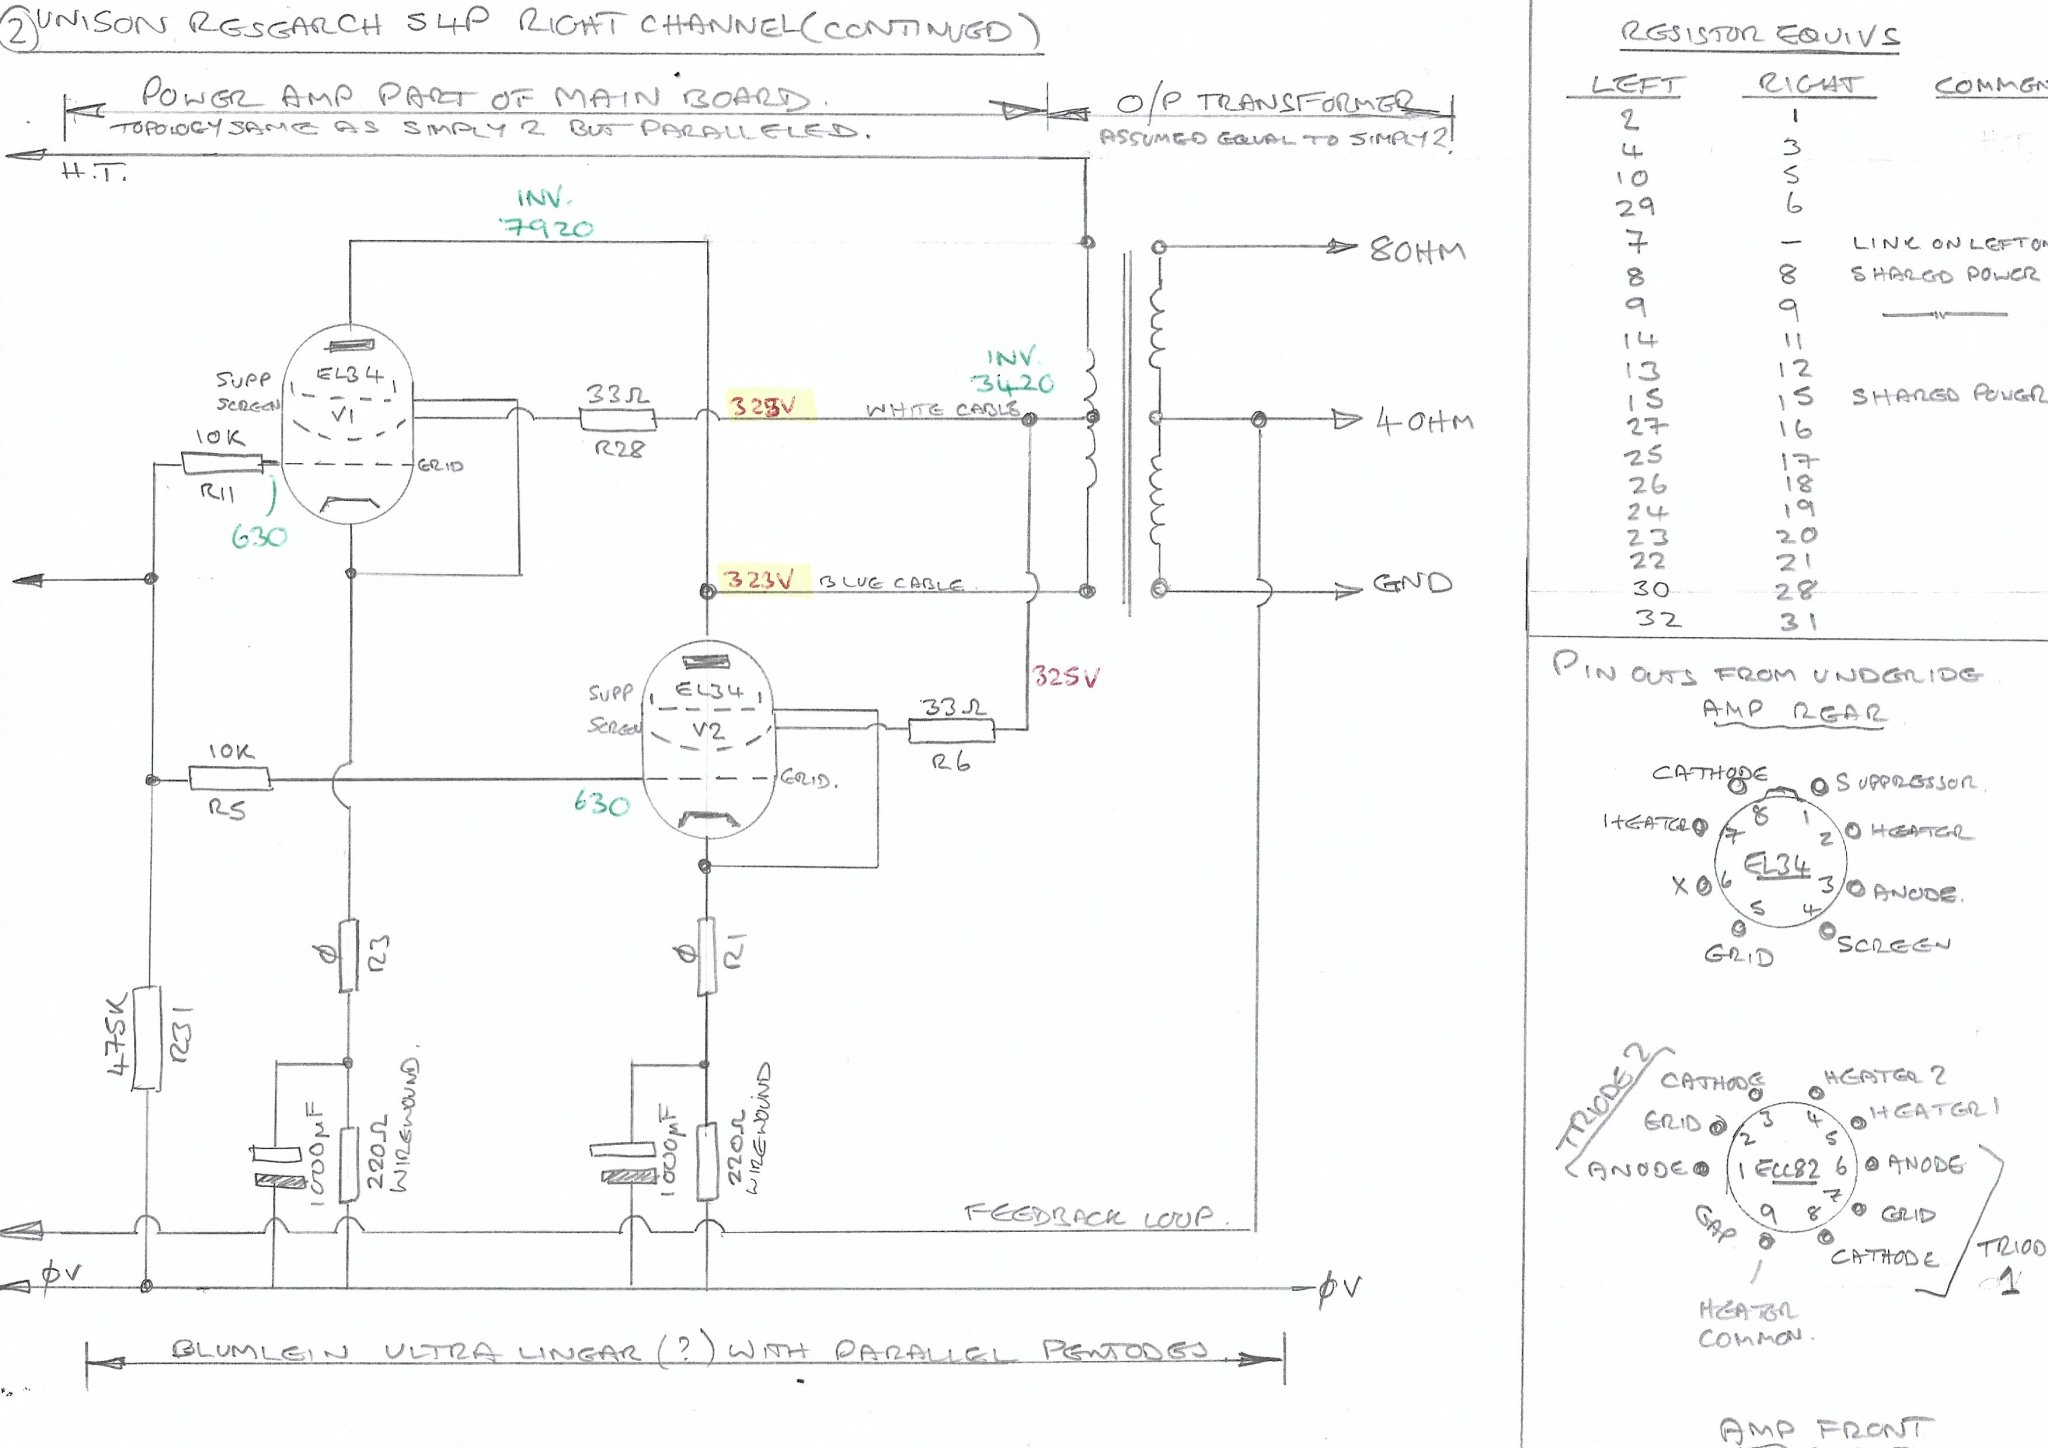 ② UNISON RESEARCH S4P RIGHT CHANNEL (CONTINUED)
POWER AMP PART OF MAIN BOARD.
TOPOLOGY SAME AS SIMPLY 2 BUT PARALLELED.
O/P TRANSFORMER
ASSUMED EQUAL TO SIMPLY 2!
H.T.
INV.
7920
8 OHM
SUPP
SCREEN
EL34
V1
33Ω
R28
325V
WHITE CABLE
INV.
3420
4 OHM
10K
R11
GRID
630
323V
BLUE CABLE
GND
SUPP
SCREEN
EL34
V2
33Ω
R6
325V
10K
R5
630
GRID.
φ
R3
φ
R1
475K
R31
1000µF
220Ω
WIREWOUND.
1000µF
220Ω
WIREWOUND
FEEDBACK LOOP.
φV
φV
BLUMLEIN ULTRA LINEAR (?) WITH PARALLEL PENTODES
RESISTOR EQUIVS
LEFT RIGHT COMMEN
2 1
4 3
10 5
29 6
7 — LINK ON LEFT ON
8 8 SHARED POWER
9 9 —"—
14 11
13 12
15 15 SHARED POWER
27 16
25 17
26 18
24 19
23 20
22 21
30 28
32 31
PIN OUTS FROM UNDERIDE
AMP REAR
CATHODE
SUPPRESSOR.
HEATER
HEATER
8 1
7 2
EL34
X 6 3 ANODE.
5 4
GRID
SCREEN
TRIODE 2
CATHODE
HEATER 2
GRID
HEATER 1
3 4
2 5
ANODE 1 ECC82 6 ANODE
7
9 8
GAP
GRID
CATHODE
TRIOD
1
HEATER
COMMON.
AMP FRONT